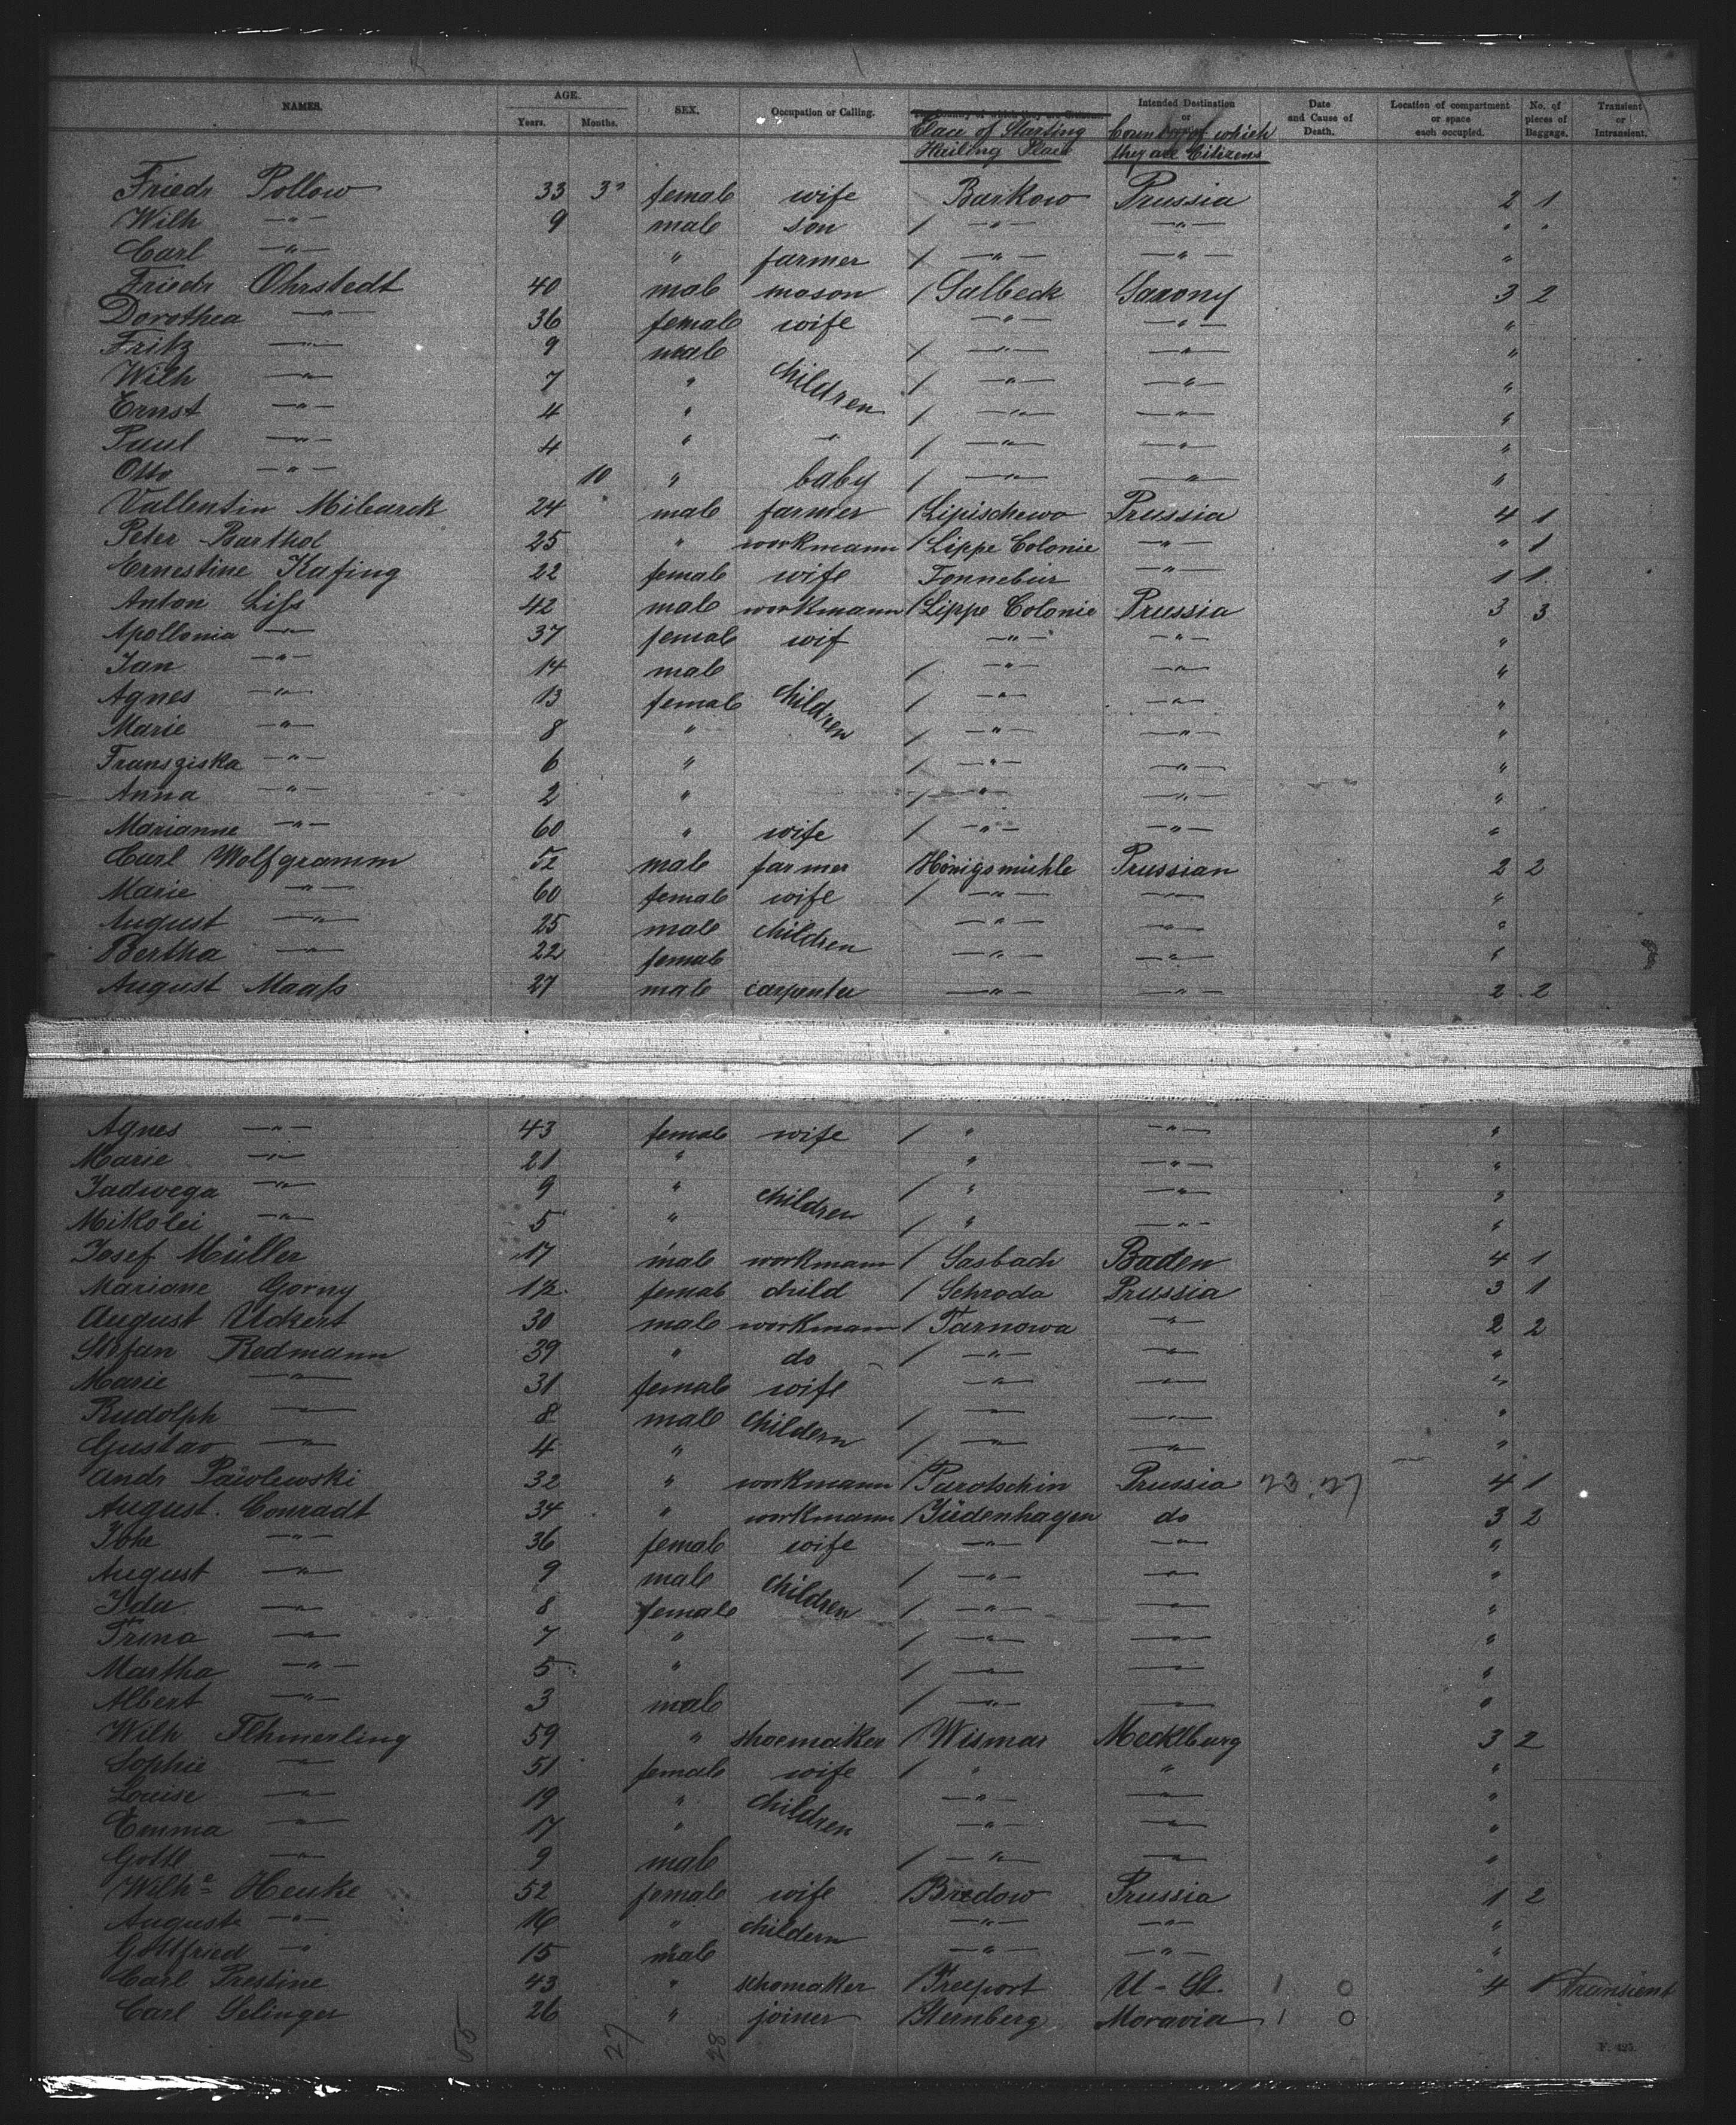 NAMES. AGE. Years. Months. SEX. Occupation or Calling. Place of Starting Hailing Place Intended Destination or Country of which they are Citizens Date and Cause of Death. Location of compartment or space each occupied. No. of pieces of Baggage. Transient or Intransient.
Friedr Pollow 33 3 female wife Barkow Prussia 2 1
Wilh —"— 9 male son / —"— —"— " "
Carl —"— " farmer / —"— —"— "
Friedr Ohrstedt 40 male mason / Salbeck Saxony 3 2
Dorothea —"— 36 female wife —"— —"— "
Fritz —"— 9 male / —"— —"— "
Wilh —"— 7 " children / —"— —"— "
Ernst —"— 4 " / —"— —"— "
Paul —"— 4 " " / —"— —"— "
Otto —"— 10 " baby / —"— —"— "
Vallentin Mibarek 24 male farmer / Lipischewo Prussia 4 1
Peter Barthol 25 " workmann / Lippe Colonie —"— " 1
Ernestine Kafing 22 female wife Tonnebür —"— 1 1
Anton Liss 42 male workmann / Lippe Colonie Prussia 3 3
Apollonia —"— 37 female wif —"— —"— "
Jan —"— 14 male / —"— —"— "
Agnes —"— 13 female children / —"— —"— "
Marie —"— 8 " / —"— —"— "
Fransziska —"— 6 " / —"— —"— "
Anna —"— 2 " / —"— —"— "
Marianne —"— 60 " wife / —"— —"— "
Carl Wolfgramm 52 male farmer / Hönigsmühle Prussian 2 2
Marie —"— 60 female wife / —"— —"— "
August —"— 25 male children —"— —"— "
Bertha —"— 22 female —"— —"— "
August Maass 27 male carpenter —"— —"— 2 2
Agnes —"— 43 female wife / " —"— "
Marie —"— 21 " " —"— "
Jadwega —"— 9 " children / " —"— "
Mikolei —"— 5 " / " —"— "
Josef Müller 17 male workmann / Sasbach Baden 4 1
Mariane Gorny female child / Schroda Prussia 3 1
August Uckert 30 male workmann / Tarnowa —"— 2 2
Stefan Redmann 39 " do / —"— —"— "
Marie —"— 31 female wife —"— —"— "
Rudolph —"— 8 male childern / —"— —"— "
Gustav —"— 4 " / —"— —"— "
Andr Pawlewski 32 " workmann / Parotschin Prussia 23.27 4 1
August Conradt 34 " workmann / Jüdenhagen do 3 2
—"— 36 female wife —"— —"— "
August —"— 9 male children / —"— —"— "
Ida —"— 8 female / —"— —"— "
Trina —"— 7 " / —"— —"— "
Martha —"— 5 " / —"— —"— "
Albert —"— 3 male / —"— —"— "
Wilh 59 " shoemaiker / Wismar Mecklburg 3 2
Sophie —"— 51 female wife / " " "
Louise —"— 19 " children —"— —"— "
Emma —"— 17 " —"— —"— "
Gottl —"— 9 male / —"— —"— "
Wilhe Henke 52 female wife / Bredow Prussia 1 2
Auguste —"— 16 " childern —"— —"— "
Gottfried —"— 15 male —"— —"— "
Carl Prestine 43 " schomaker / Freeport U - St. 1 0 4 1 Transient
Carl Selinger 26 " joiner / Sternberg Moravia 1 0
55 27 28
F. 425.